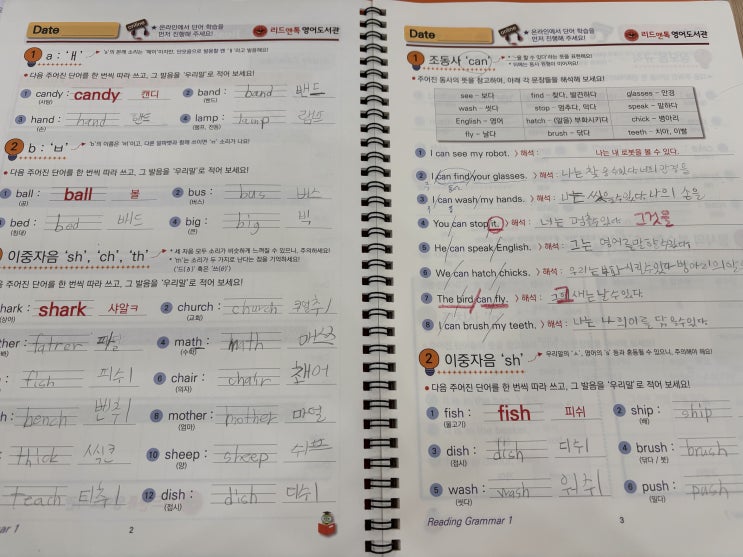 Date
online
★ 온라인에서 단어 학습을
먼저 진행해 주세요!
리드앤톡 영어도서관
1 a : 'ㅐ'
● 다음 주어진 단어를 한 번씩 따라 쓰고, 그 발음을 '우리말'로 적어 보세요!
1 candy : candy 캔디
(사탕)
2 band : band 밴드
(밴드)
3 hand : hand 핸드
(손)
4 lamp : lamp 램프
(램프, 전등)
2 b : 'ㅂ'
● 다음 주어진 단어를 한 번씩 따라 쓰고, 그 발음을 '우리말'로 적어 보세요!
1 ball : ball 볼
(공)
2 bus : bus 버스
(버스)
bed : bed 베드
(침대)
4 big : big 빅
(큰)
이중자음 'sh', 'ch', 'th'
★ 세 자음 모두 소리가 비슷하게 느껴질 수 있으니, 주의하세요!
★ 'th'는 소리가 두 가지로 난다는 점을 기억하세요!
('드(ð)' 혹은 '쓰(θ)')
다음 주어진 단어를 한 번씩 따라 쓰고, 그 발음을 '우리말'로 적어 보세요!
hark : shark 샤알ㅋ
(상어)
2 church : church
(교회)
ther :
4 math : math
(수학)
fish 피쉬
6 chair : chair 체어
(의자)
h : bench 벤취
8 mother : mother 마덜
(엄마)
thick 씩크
10 sheep : sheep 쉬프
(양)
teach 티취
12 dish : dish 디쉬
(접시)
mar 1
2
Date
online
★ 온라인에서 단어 학습을
먼저 진행해 주세요!
리드앤톡 영어도서관
1 조동사 'can'
● 주어진 동사의 뜻을 참고하여, 아래 각 문장들을 해석해 보세요!
see - 보다 find - 찾다, 발견하다 glasses - 안경
wash - 씻다 stop - 멈추다, 막다 speak - 말하다
English - 영어 hatch - (알을) 부화시키다 chick - 병아리
fly - 날다 brush - 닦다 teeth - 치아, 이빨
1 I can see my robot. 〉해석 : 나는 내 로봇을 볼 수 있다.
2 I can find your glasses. 〉해석 : 나는 찾을수있다 너의 안경을
3 I can wash my hands. 〉해석 : 나는 씻을수있다 나의 손을
4 You can stop it. 〉해석 : 너는 멈출수있다 그것을
5 He can speak English. 〉해석 : 그는 영어를말할수있다
6 We can hatch chicks. 〉해석 : 우리는
7 The bird can fly. 〉해석 : 그 새는 날수있다
8 I can brush my teeth. 〉해석 : 나는 나의이를 닦을수있다
2 이중자음 'sh'
● 다음 주어진 단어를 한 번씩 따라 쓰고, 그 발음을 '우리말'로 적어 보세요!
1 fish : fish 피쉬
(물고기)
2 ship : ship
(배)
3 dish : dish 디쉬
(접시)
4 brush : brush
(닦다 / 붓)
5 wash : wash 워쉬
(씻다)
6 push : push
(밀다)
Reading Grammar 1
3